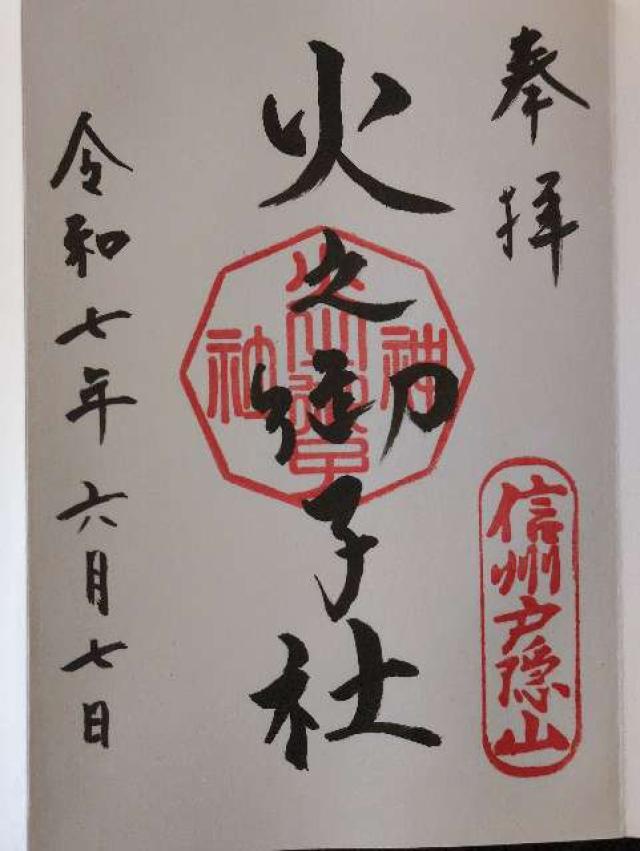 奉拝
信州戸隠山
火之御子社
神
社
令和七年六月七日